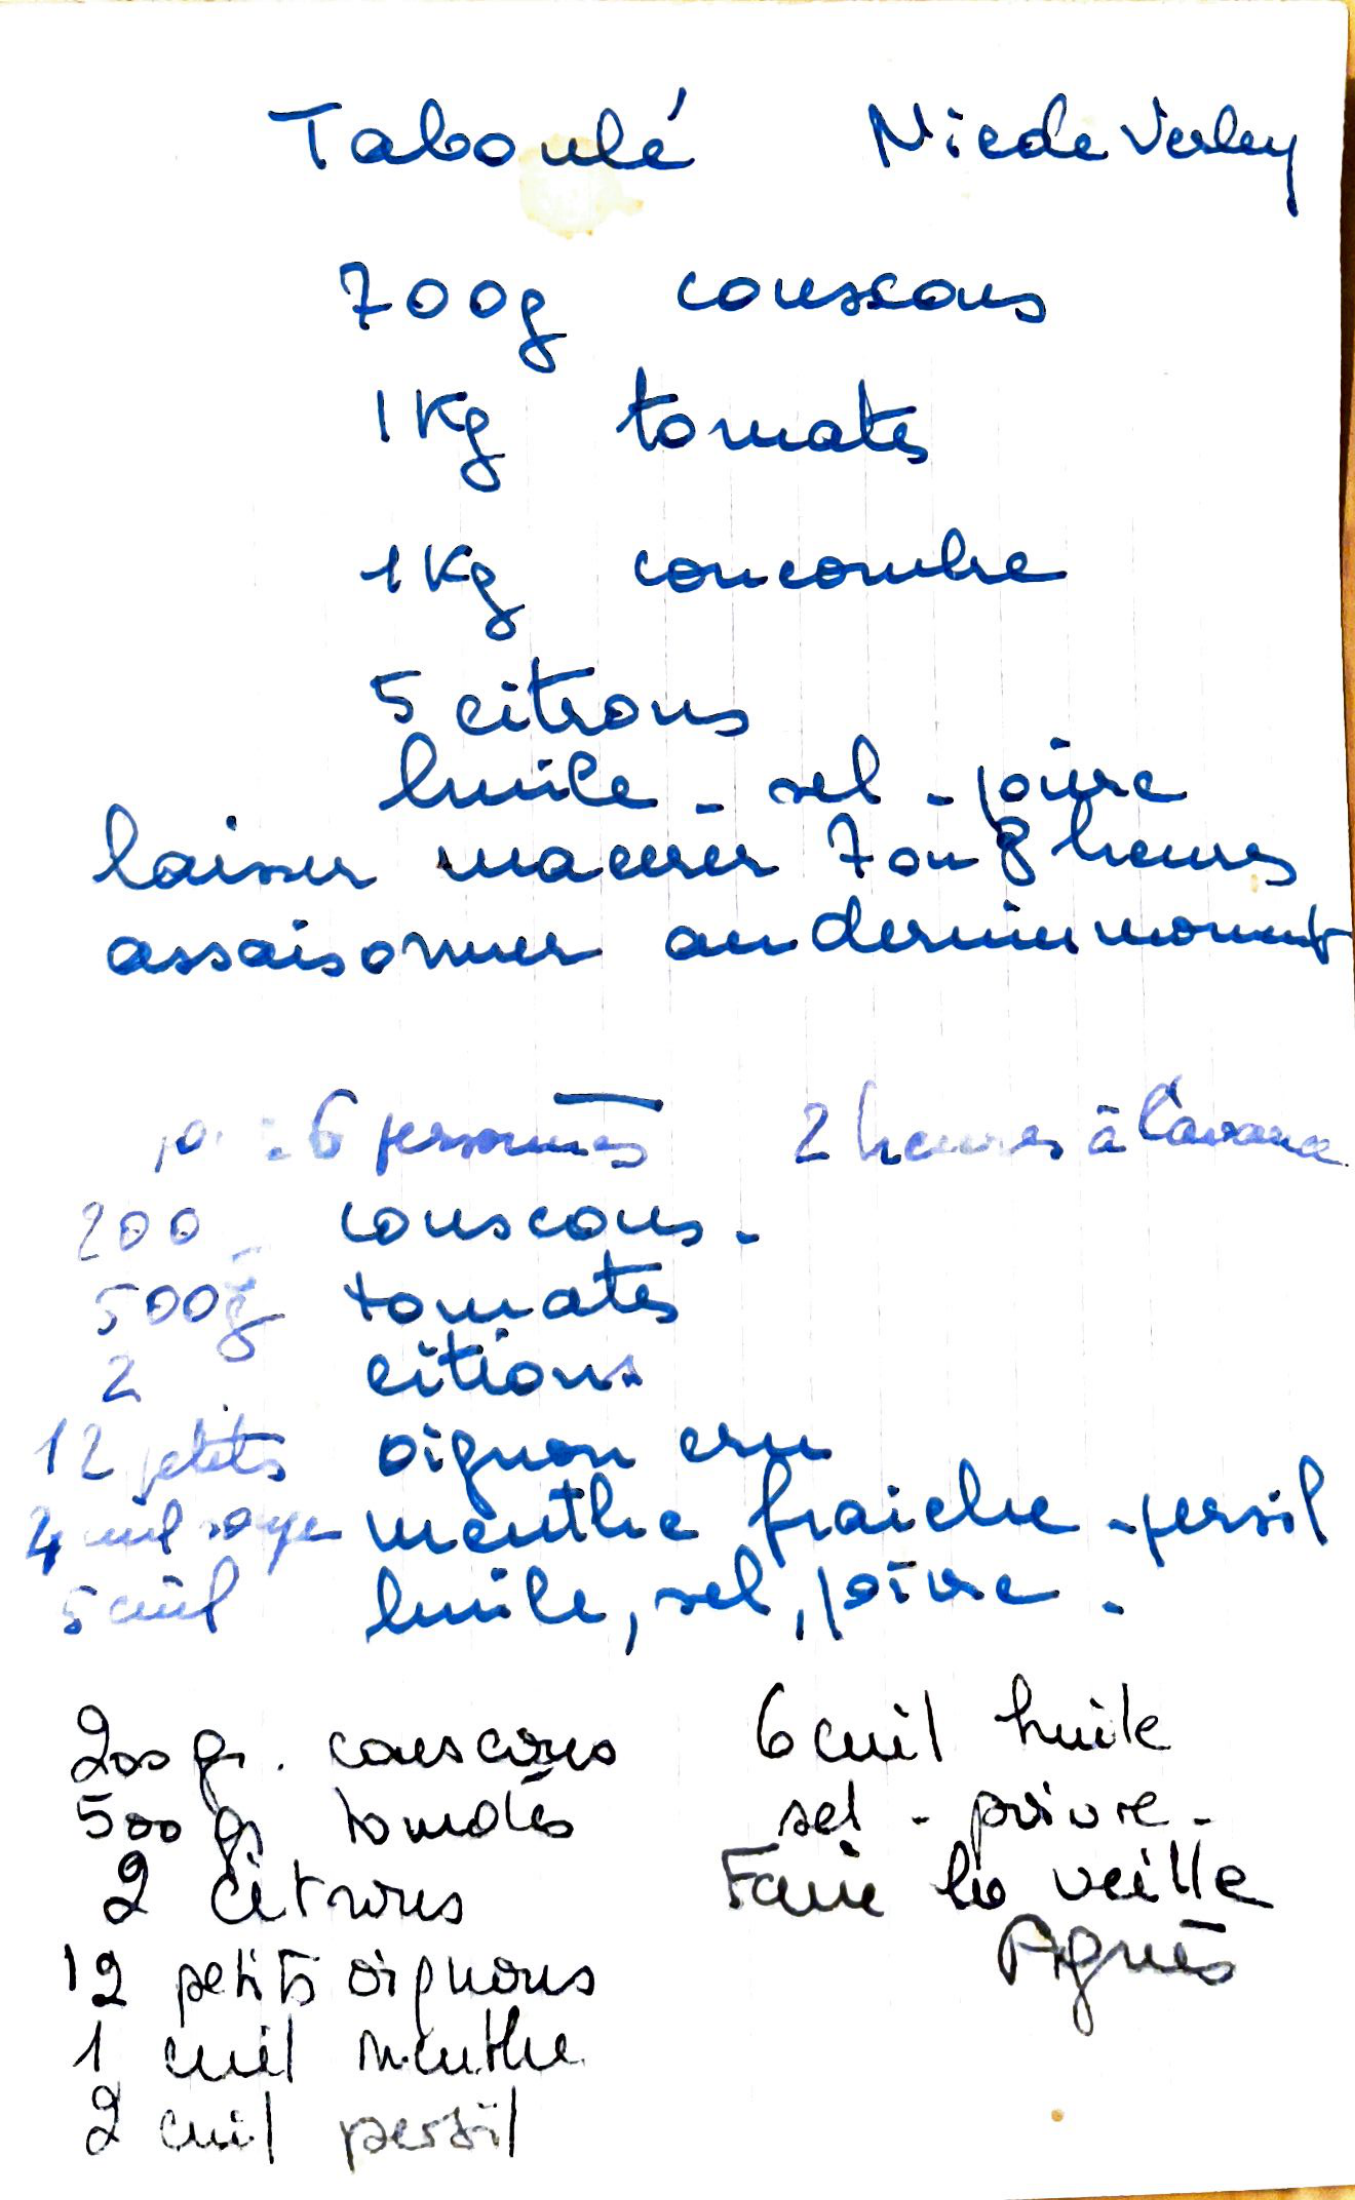 Taboulé Nicde Verley
700g couscous
1Kg tomates
1Kg concombre
5 citrons
huile - sel - poivre
laisser macérer 7 ou 8 heures
assaisonner au dernier moment
6 personnes 2 heures à l'avance
200 couscous -
500g tomates
2 citrons
12 petits oignon cru
4 cuil soupe menthe fraiche - persil
5 cuil huile, sel, poivre -
200 gr. couscous
500 gr tomates
2 citrons
12 petits oignons
1 cuil menthe
2 cuil persil
6 cuil huile
sel - poivre -
Faire la veille
Agnès